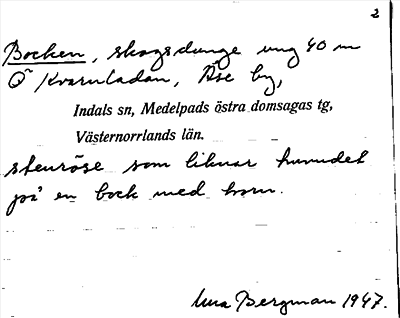 2
Bocken, skogsdunge ung 40 m
Ö Kvarnladan, Åse by,
Indals sn, Medelpads östra domsagas tg,
Västernorrlands län.
stenröse som liknar huvudet
på en bock med horn.
Bergman 1947.